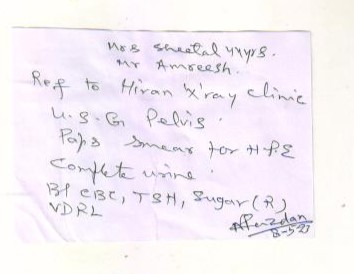 Mrs Sheetal 44yrs.
Mr Amreesh.
Ref to Hiran X'ray clinic
U.S.G Pelvis.
Paps Smear for HPE
Complete urine.
Bl CBC, TSH, Sugar (R)
VDRL